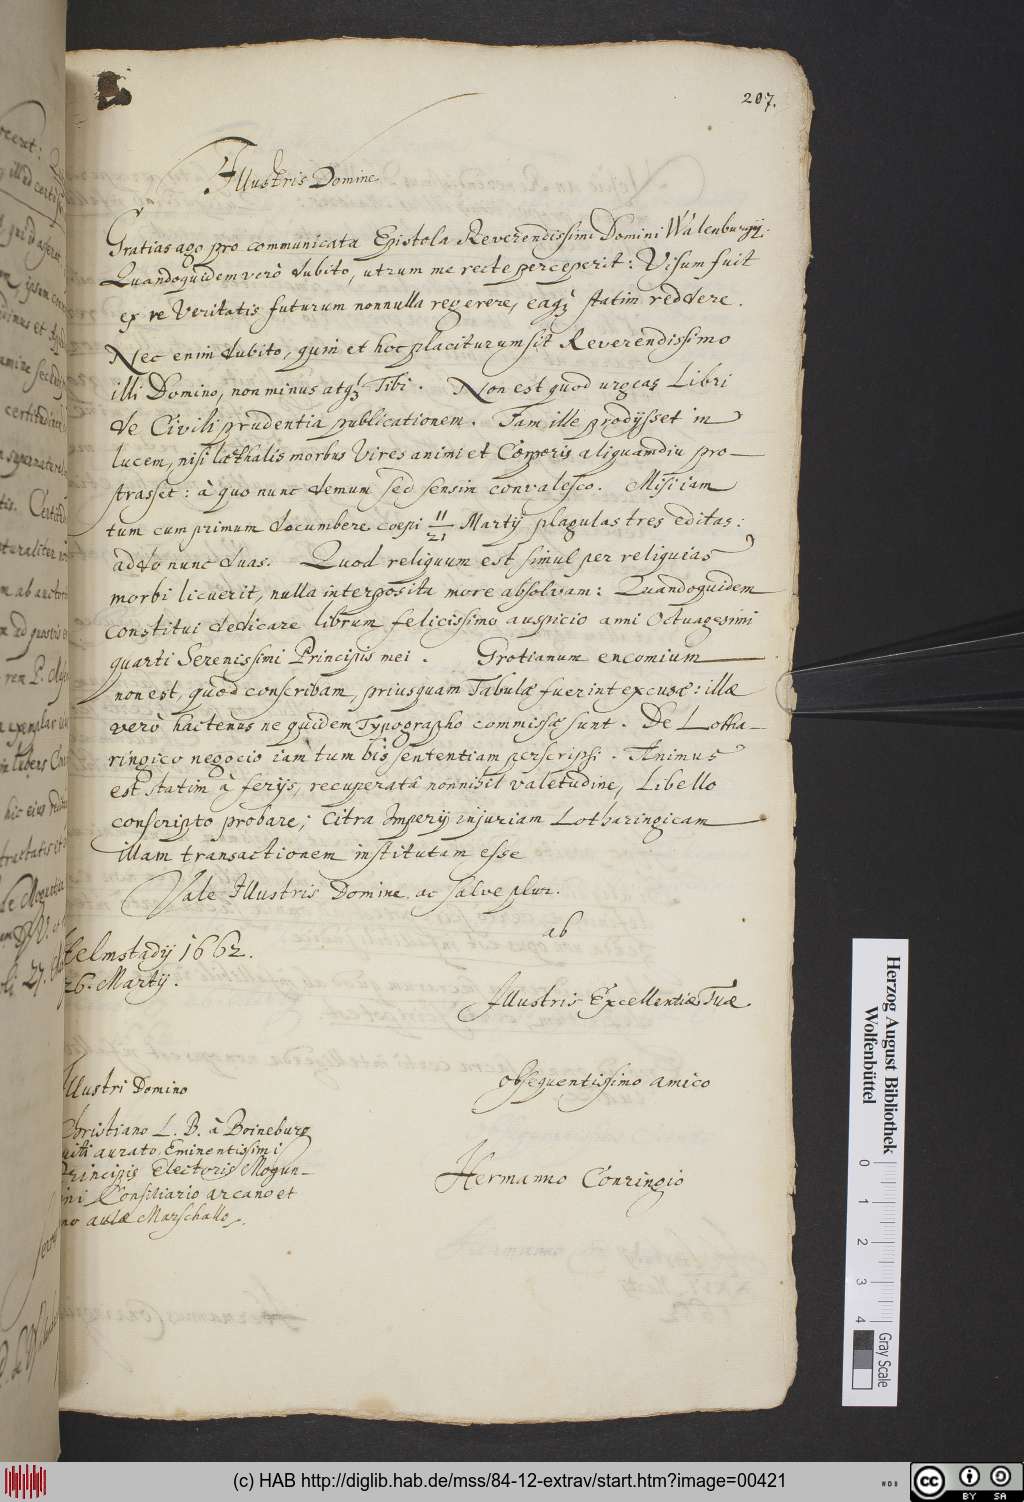 207.
Illustris Domine
Gratias ago pro communicata Epistola Reverendissimi Domini Walenburgij.
Quandoquidem verò dubito, utrum me recte perceperit: Visum fuit
ex re veritatis futurum nonnulla regerere, eaq; statim reddere.
Nec enim dubito, quin et hoc placiturum sit Reverendissimo
illi Domino, non minus atq; Tibi. Non est quod urgeas Libri
de Civili prudentia publicationem. Iam ille prodijsset in
lucem, nisi læthalis morbus vires animi et Corporis aliquamdiu pro-
strasset: à quo nunc demum sed sensim convalesco. Misi iam
tum cum primum decumbere coepi 11/21 Martij plagulas tres editas:
addo nunc duas. Quod reliquum est simul per reliquias
morbi licuerit, nulla interposita more absolvam: Quandoquidem
constitui dedicare librum felicissimo auspicio anni Octuagesimi
quarti Serenissimi Principis mei. Grotianum encomium
non est, quod conscribam, priusquam Tabulæ fuerint excusæ: illæ
verò hactenus ne quidem Typographo commissæ sunt. De Lotha-
ringico negocio iam tum bis sententiam perscripsi. Animus
est statim à ferijs, recuperatâ nonnihil valetudine, Libello
conscripto probare, citra Imperij injuriam Lotharingicam
illam transactionem institutam esse
Vale Illustris Domine ac salve plur.
ab
Helmstadij 1662.
26. Martij.
Illustris Excellentiæ Tuæ
Illustri Domino
obsequentissimo amico
Christiano L. B. à Boineburg
aurato, Eminentissimi
Principis Electoris Mogun-
tini Consiliario arcano et
aulæ Marschallo.
Hermanno Conringio
Herzog August Bibliothek
Wolfenbüttel
0 1 2 3 4
Gray Scale
(c) HAB http://diglib.hab.de/mss/84-12-extrav/start.htm?image=00421
cc BY SA